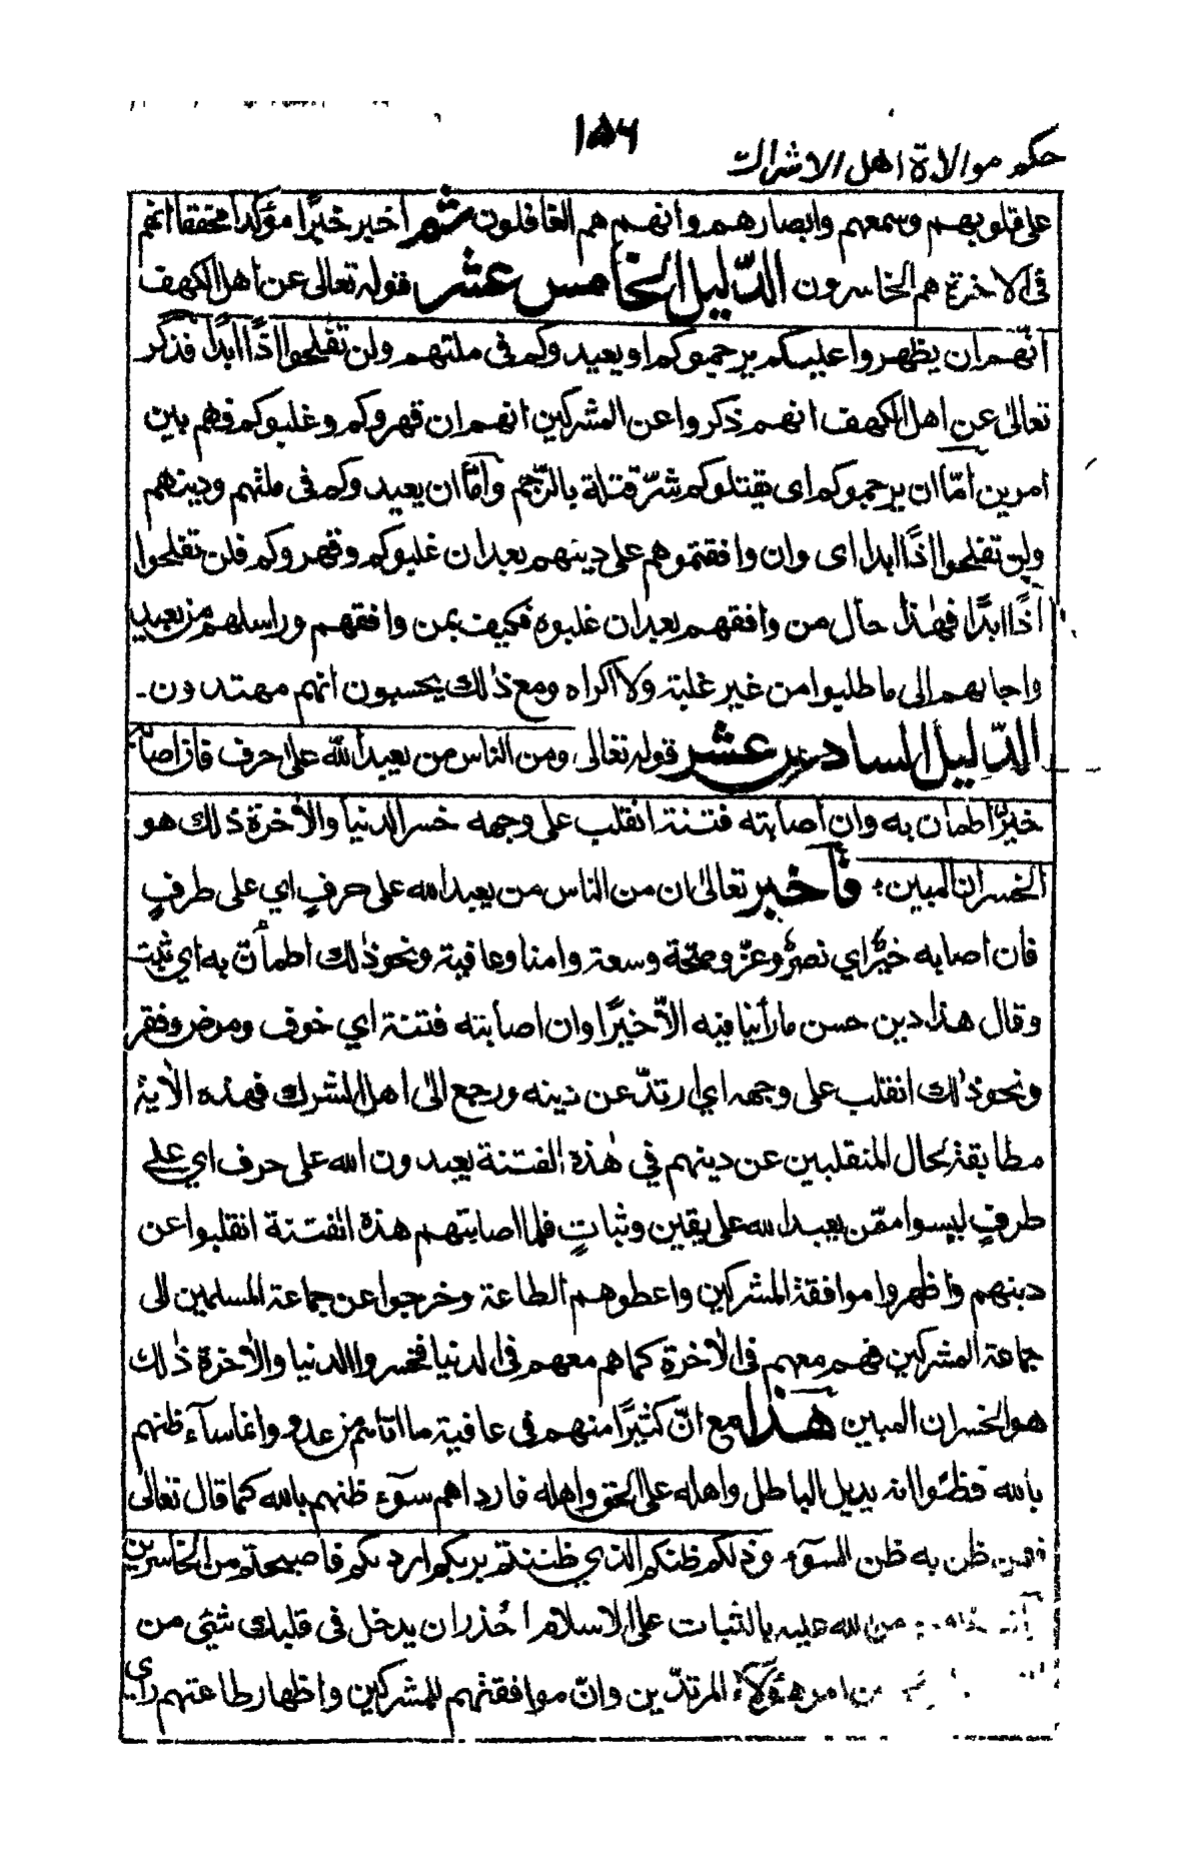 ١٥٦
حكم موالاة اهل الاشراك
على قلوبهم وسمعهم وابصارهم وانهم هم الغافلون ثم اخبر خبرًا مؤكدا محققا انهم
فى الاخرة هم الخاسرون الدّليل الخامس عشر قوله تعالى عن اهل الكهف
انّهم ان يظهروا عليكم يرجموكم او يعيدوكم فى ملتهم ولن تفلحوا اذًا ابدًا فذكر
تعالىٰ عن اهل الكهف انهم ذكروا عن المشركين انهم ان قهروكم وغلبوكم فهم بين
امرين امّا ان يرجموكم اى يقتلوكم شرّ قتلة بالرّجم وامّا ان يعيدوكم فى ملتهم ودينهم
ولن تفلحوا اذًا ابدا اى وان وافقتموهم على دينهم بعد ان غلبوكم وقهروكم فلن تفلحوا
اذًا ابدًا فهٰذا حال من وافقهم بعد ان غلبوه فكيف بمن وافقهم وراسلهم من بعيد
واجابهم الى ما طلبوا من غير غلبة ولا اكراه ومع ذٰلك يحسبون انهم مهتدون-
الدّليل السادس عشر قوله تعالى ومن الناس من يعبد الله على حرف فان اصابه
خيرٌ اطمأن به وان اصابته فتنة انقلب على وجهه خسر الدنيا والاٰخرة ذلك هو
الخسران المبين؛ فأخبر تعالىٰ ان من الناس من يعبد الله على حرفٍ اي على طرفٍ
فان اصابه خيرٌ اي نصرٌ وعزٌ وصحة وسعة وامنا وعافية ونحو ذٰلك اطمأنّ به اي ثبت
وقال هذا دين حسن ما رأينا فيه الاّ خيرًا وان اصابته فتنة اي خوف ومرض وفقر
ونحو ذٰلك انقلب على وجهه اي ارتدّ عن دينه ورجع الىٰ اهل الشرك فهذه الاٰية
مطابقة لحال المنقلبين عن دينهم في هٰذه الفتنة يعبدون الله على حرف اي على
طرفٍ ليسوا ممّن يعبد الله على يقين وثباتٍ فلما اصابتهم هذه الفتنة انقلبوا عن
دينهم واظهروا موافقة المشركين واعطوهم الطاعة وخرجوا عن جماعة المسلمين الى
جماعة المشركين فهم معهم فى الاٰخرة كما هم معهم فى الدنيا فخسروا الدنيا والاٰخرة ذٰلك
هو الخسران المبين هذا مع انّ كثيرًا منهم في عافية ما اتاهم من عدو وانما ساء ظنهم
بالله فظنّوا انه يديل الباطل واهله على الحق واهله فارداهم سوٓء ظنهم بالله كما قال تعالىٰ
فيمن ظن به ظن السوٓء وذلكم ظنكم الذي ظننتم بربكم ارداكم فاصبحتم من الخاسرين
من الله عليه بالثبات على الاسلام احذر ان يدخل فى قلبك شئى من
امر هؤلآء المرتدّين وانّ موافقتهم للمشركين واظهار طاعتهم رأي